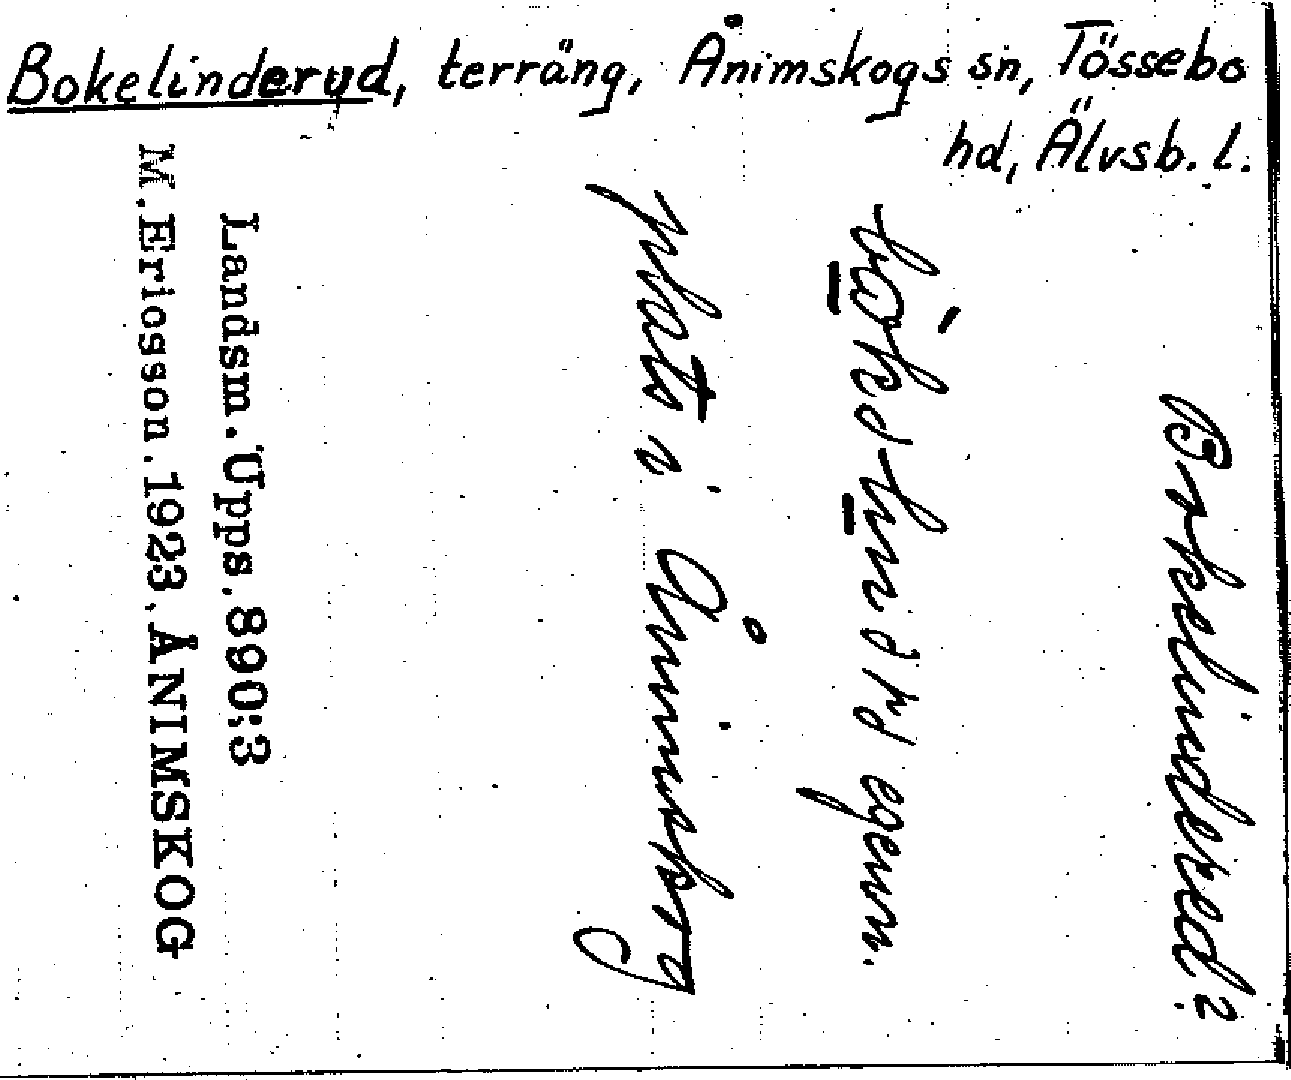 Bokelinderud, terräng, Ånimskogs sn, Tössebo
hd, Älvsb. l.
Bokelindered?
egenn.
plats i Ånimskog
Landsm. Upps. 890:3
M. Eriosson. 1923. ÅNIMSKOG